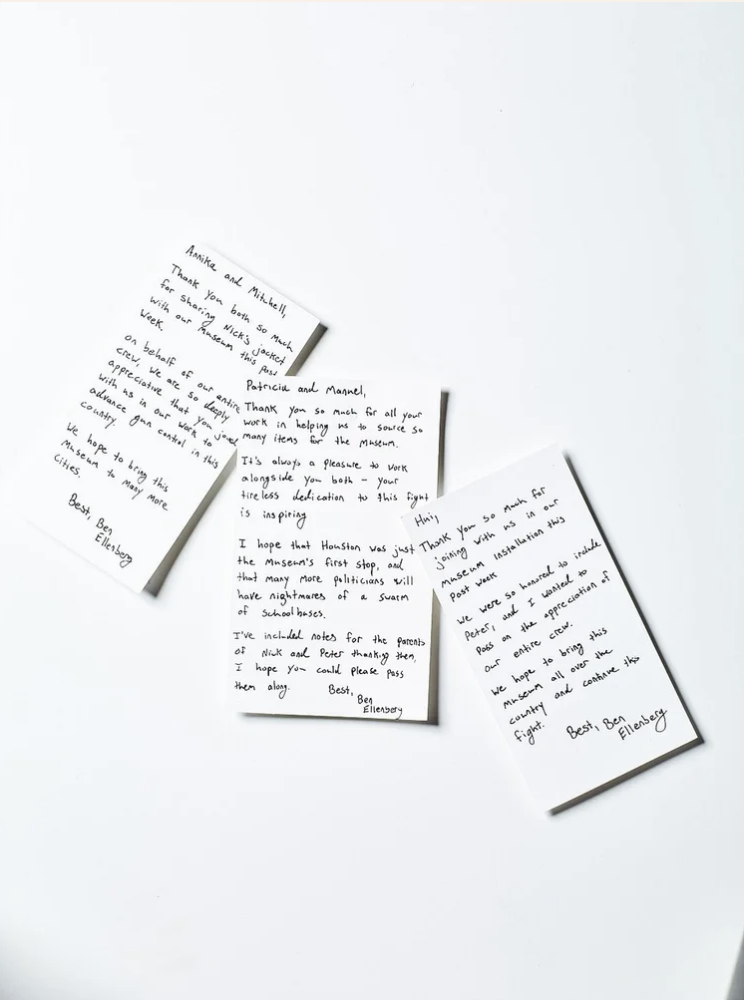 Annika and Mitchell,
Thank you both so much
for sharing Nick's jacket
with our museum this past
Week.
on behalf of our entire
crew, we are so deeply
appreciative that you joined
with us in our work to
advance gun control in this
country.
We hope to bring this
Museum to many more
Cities.
Best, Ben
Ellenberg
Patricia and Manuel,
Thank you so much for all your
work in helping us to source so
many items for the Museum.
It's always a pleasure to work
alongside you both – your
tireless dedication to this fight
is inspiring
I hope that Houston was just
the Museum's first stop, and
that many more politicians will
have nightmares of a swarm
of schoolbuses.
I've included notes for the parents
of Nick and Peter thanking them,
I hope you could please pass
them along.
Best,
Ben
Ellenberg
Hui,
Thank you so much for
joining with us in our
museum installation this
past week
We were so honored to include
Peter, and I wanted to
pass on the appreciation of
our entire crew.
We hope to bring this
museum all over the
country and continue this
fight.
Best, Ben
Ellenberg